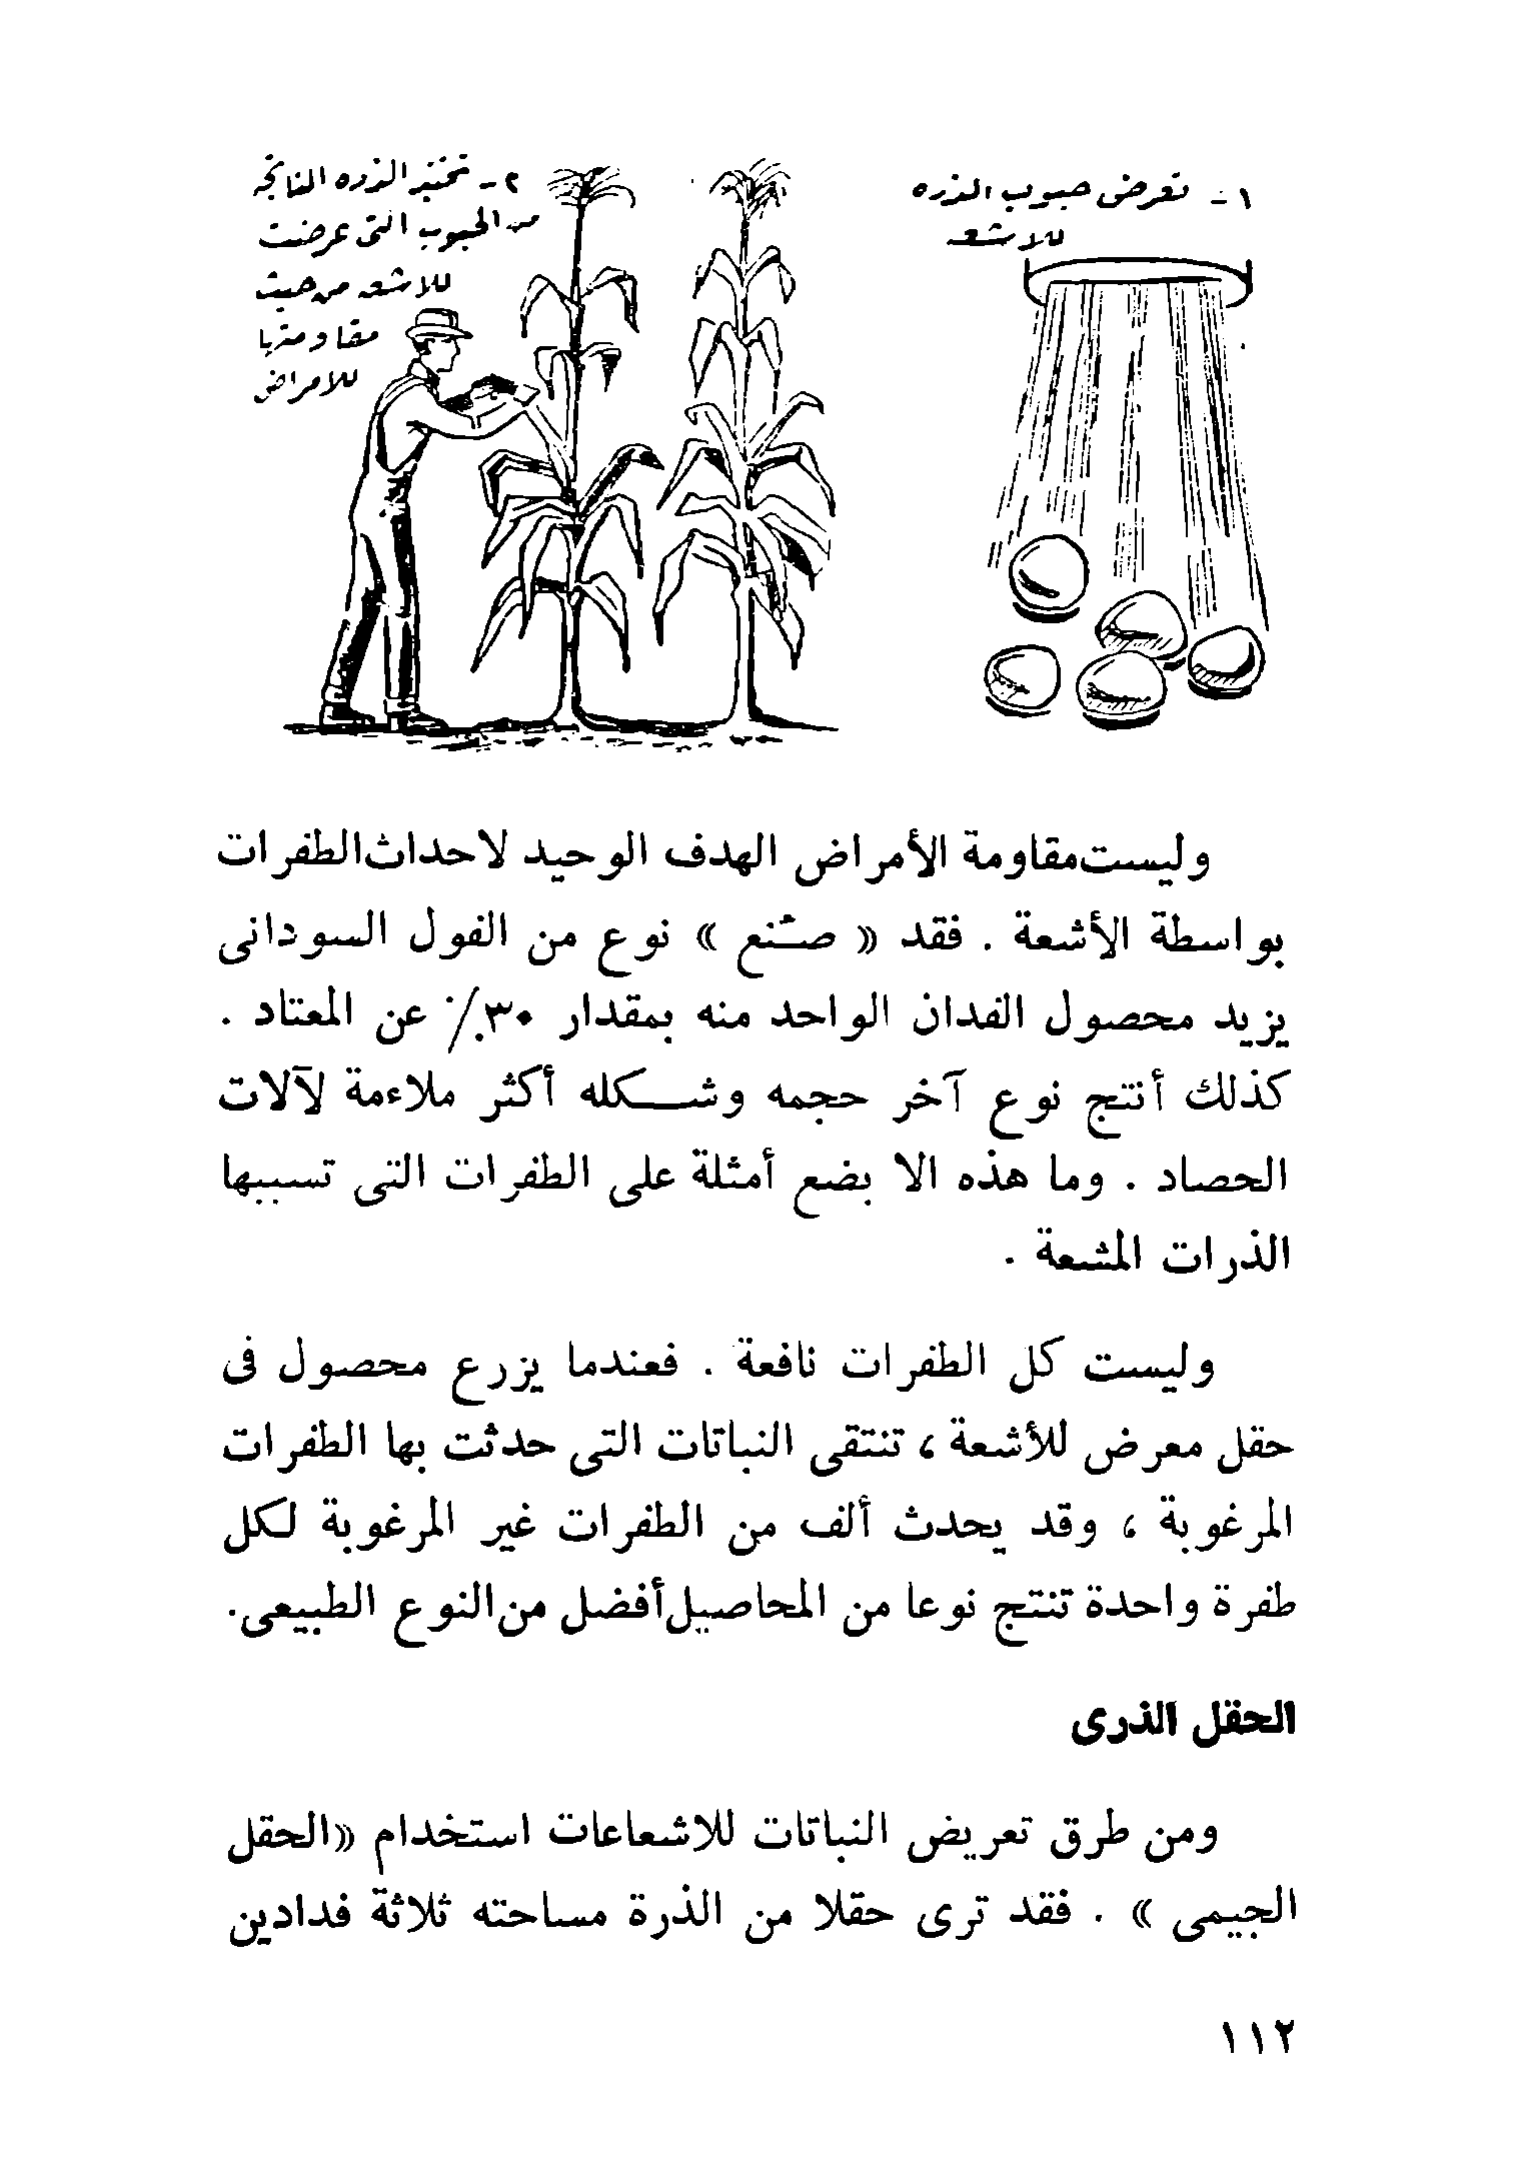 ١ - تعرض حبوب الذره
للاشعه
٢ - تختبر الذره الناتجه
من الحبوب التى عرضت
للاشعه من حيث
مقاومتها
للامراض
وليست مقاومة الأمراض الهدف الوحيد لاحداث الطفرات
بواسطة الأشعة . فقد « صُنع » نوع من الفول السودانى
يزيد محصول الفدان الواحد منه بمقدار ٣٠٪ عن المعتاد .
كذلك أنتج نوع آخر حجمه وشكله أكثر ملاءمة لآلات
الحصاد . وما هذه الا بضع أمثلة على الطفرات التى تسببها
الذرات المشعة .
وليست كل الطفرات نافعة . فعندما يزرع محصول فى
حقل معرض للأشعة ، تنتقى النباتات التى حدثت بها الطفرات
المرغوبة ، وقد يحدث ألف من الطفرات غير المرغوبة لكل
طفرة واحدة تنتج نوعا من المحاصيل أفضل من النوع الطبيعى.
الحقل الذرى
ومن طرق تعريض النباتات للاشعاعات استخدام «الحقل
الجيمى » . فقد ترى حقلا من الذرة مساحته ثلاثة فدادين
١١٢